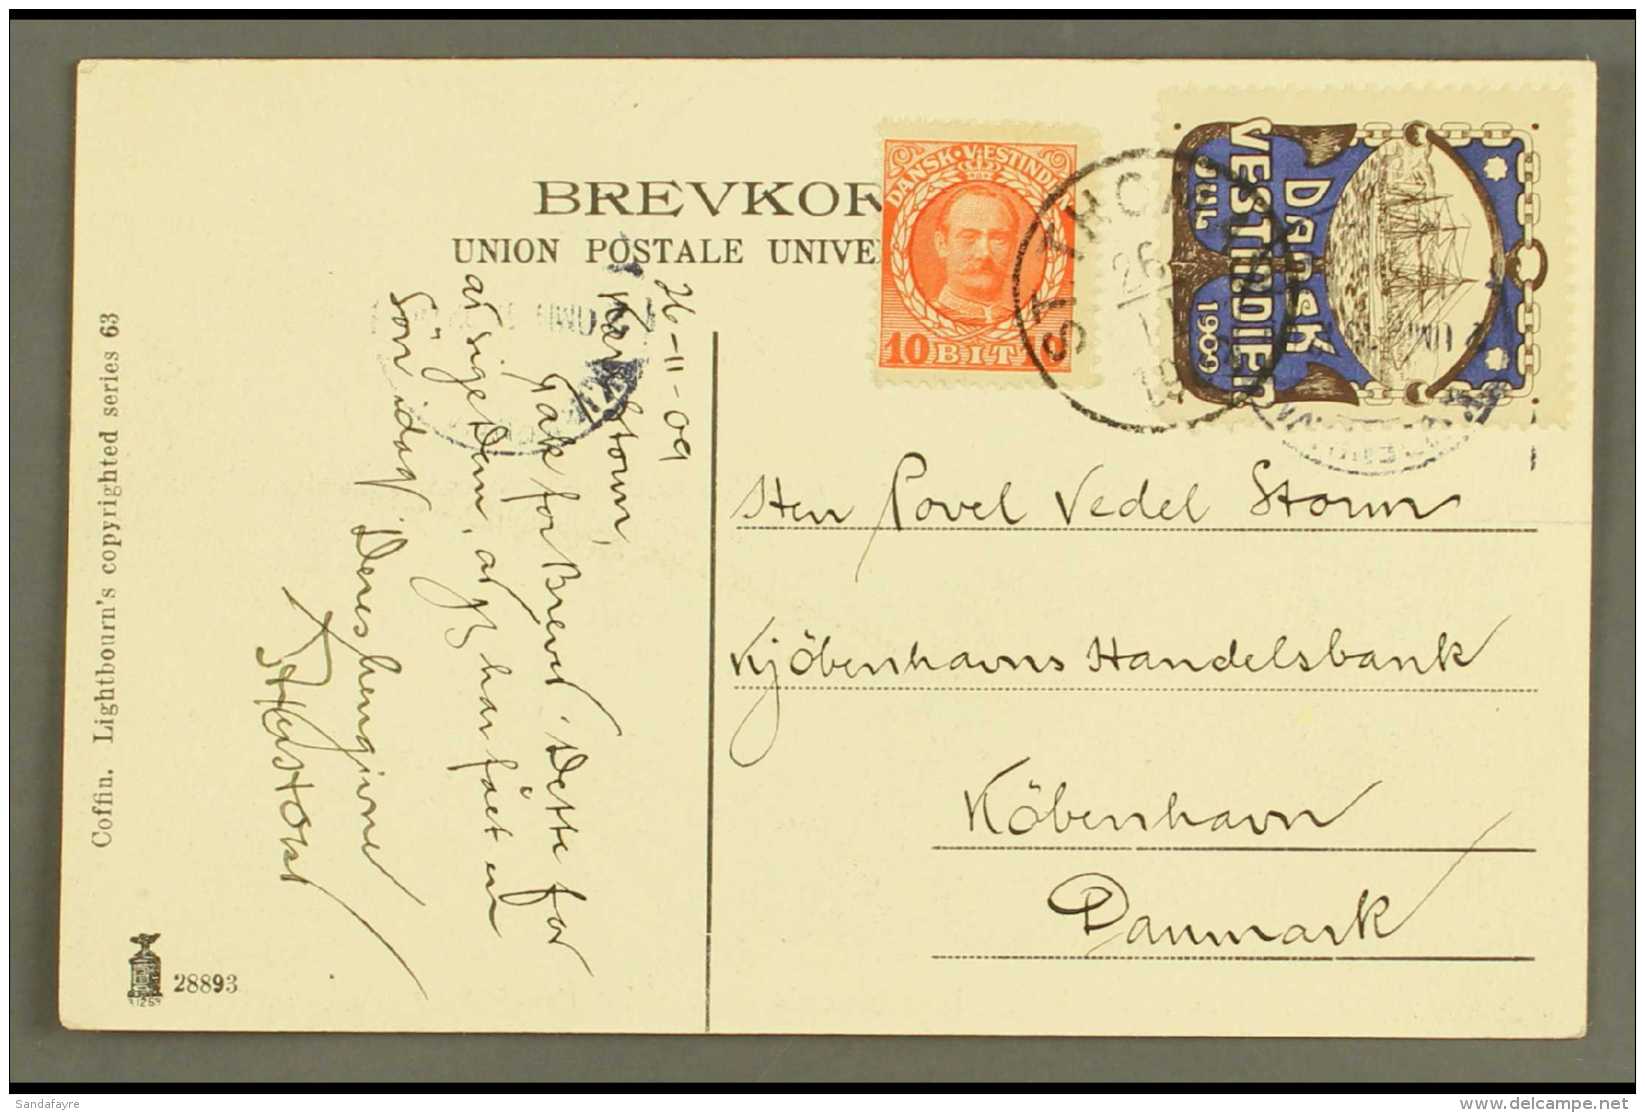 BREVKOR
UNION POSTALE UNIVE
DANSK·VÆSTINDI
10 BIT 10
Dansk
VESTINDIEN
JUL 1909
ST. THOMAS
26
26-11-09
Kære Storm,
Tak for Brevet. Dette for
at sige Dem, at jeg har fået en
Sön idag. Deres hengivne
Herr Povel Vedel Storm
Kjöbenhavns Handelsbank
Köbenhavn
Danmark
Coffin. Lightbourn's copyrighted series 63
28893
Sandafayre
www.delcampe.net